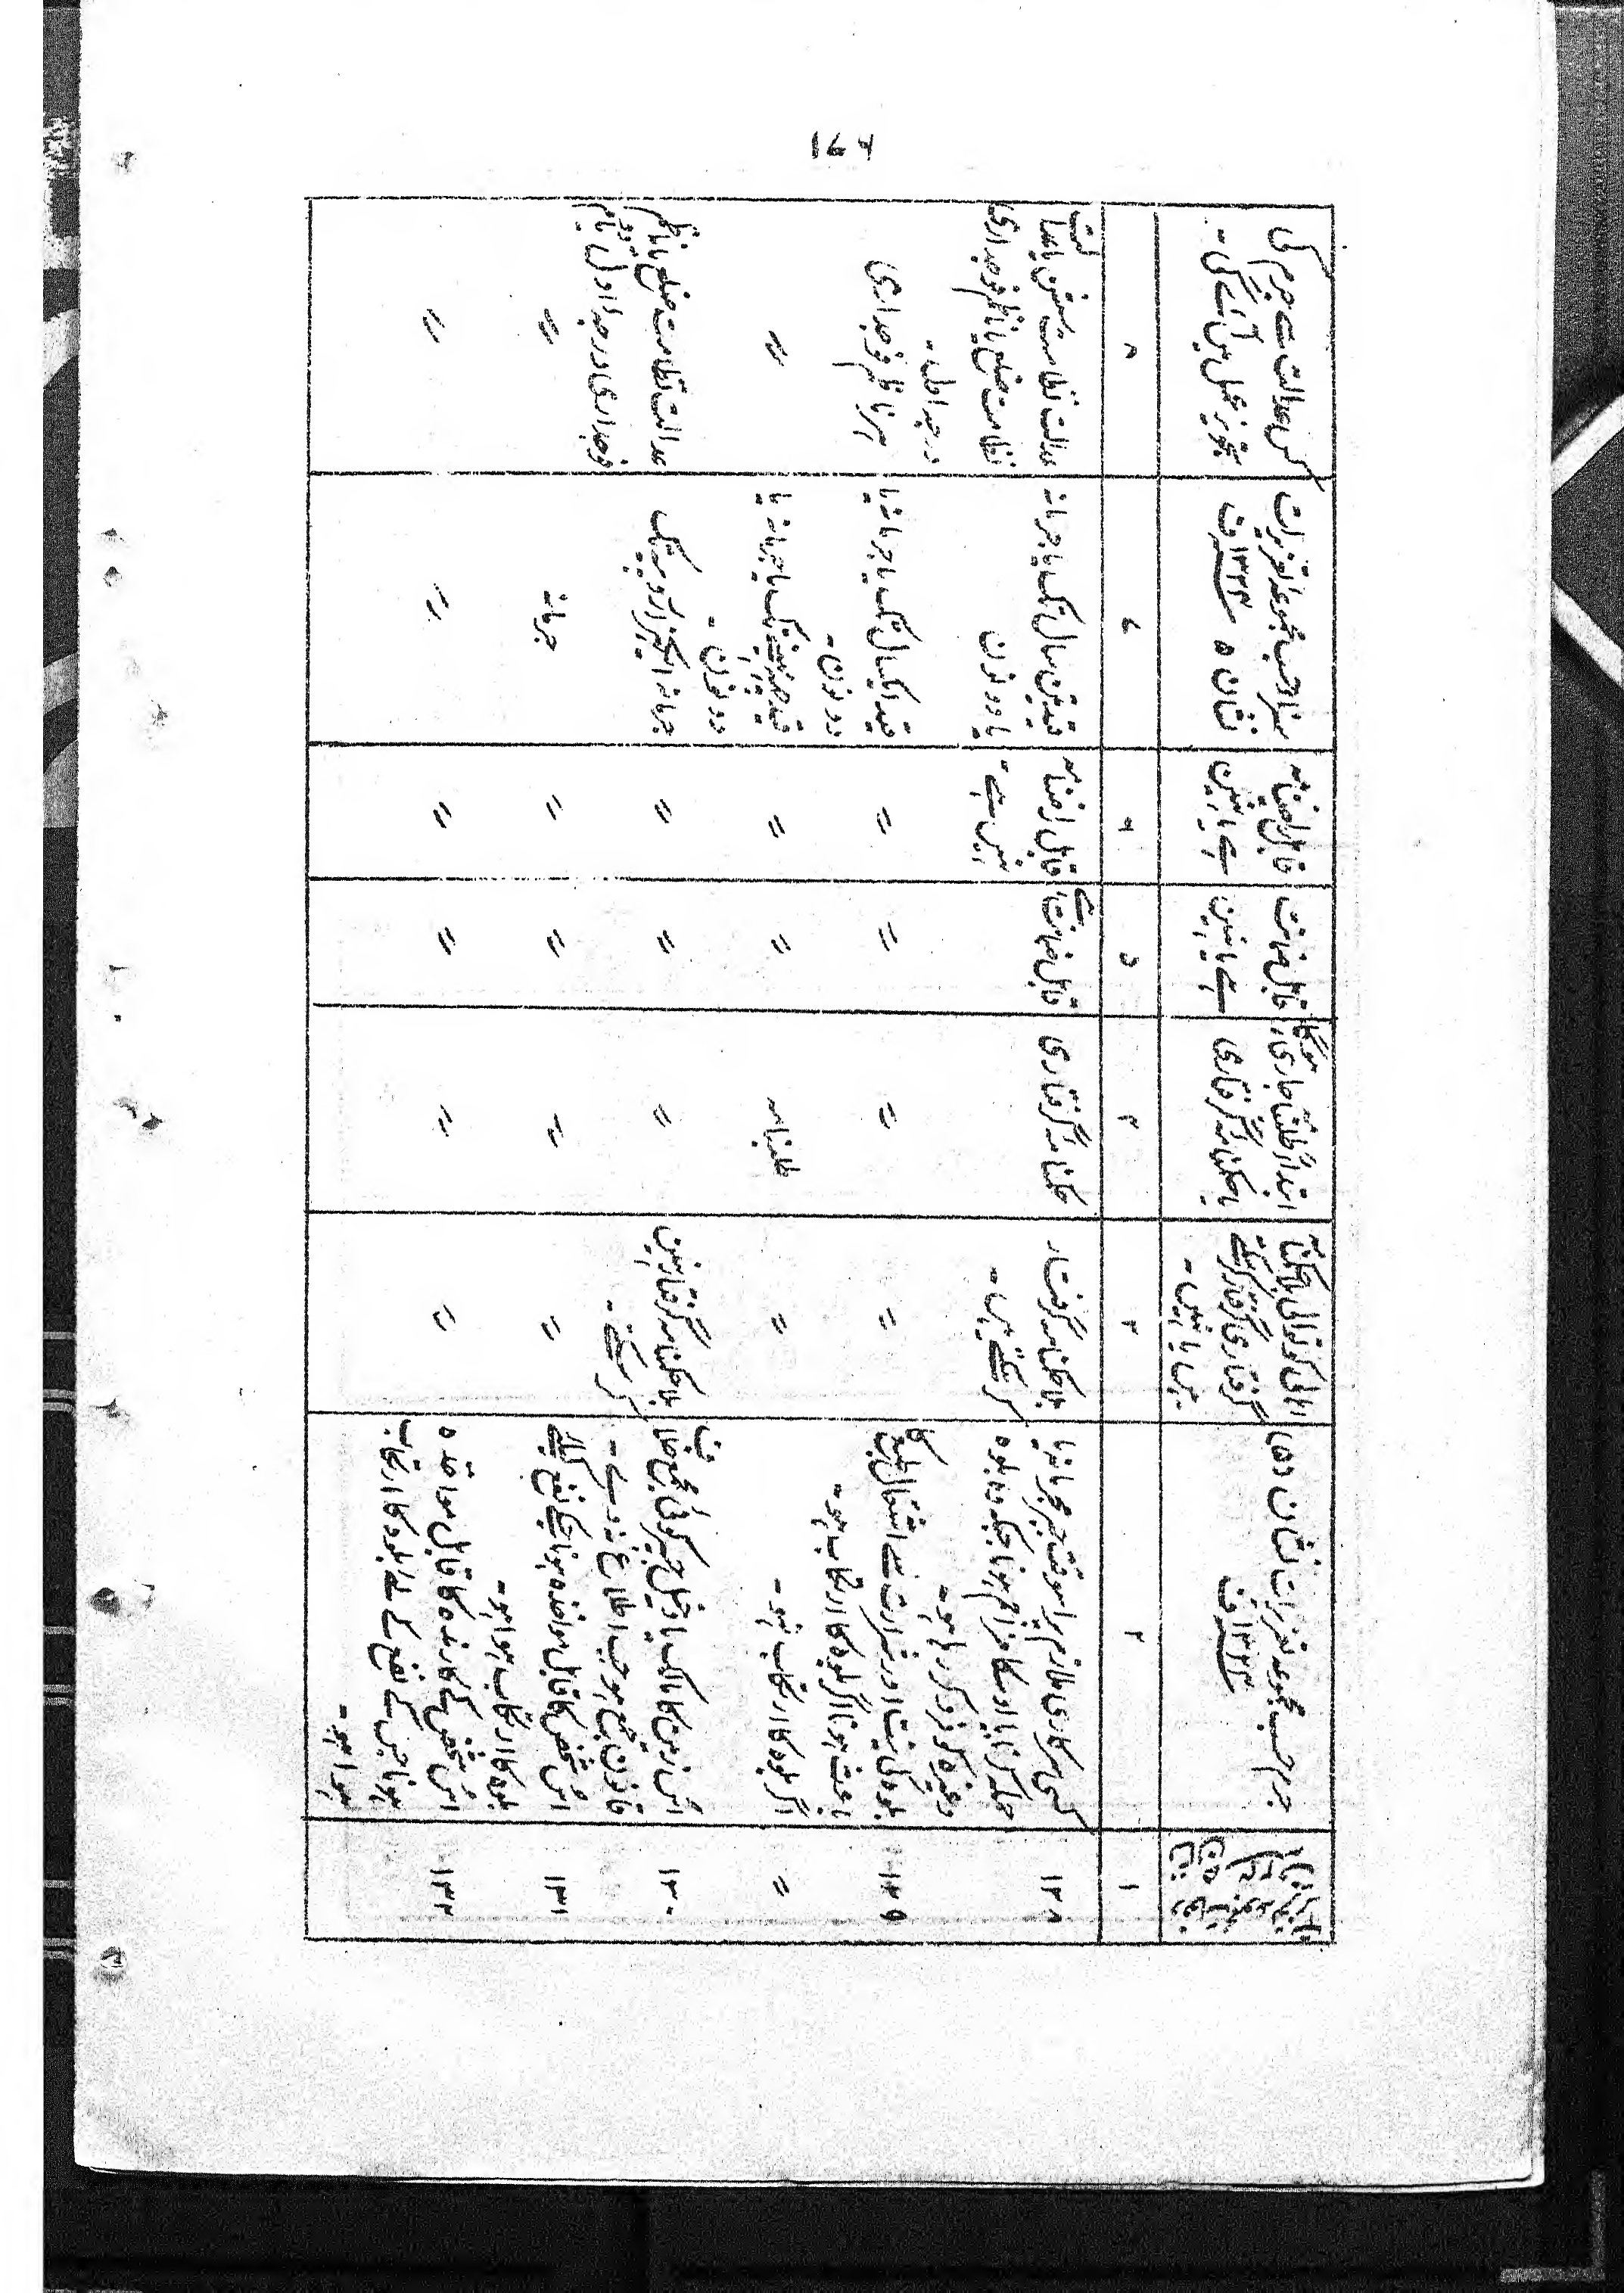 ۱۷۶
نشان دفعہ مجموعہ تعزیرات
جرم حسب مجموعہ تعزیرات نشان ۵
۱۳۳۴ف
اہالی کوتوالی بلا حکمنامہ
گرفتاری گرفتار کرسکتے
ہیں یا نہیں -
ابتداً طلبنامہ جاری ہوگا
یا حکمنامہ گرفتاری
قابل ضمانت
ہے یا نہیں
قابل راضینامہ
ہے یا نہیں
سزا حسب مجموعہ تعزیرات
نشان ۵ ۱۳۳۴ف
کس عدالت سے جرم کی
تجویز عمل میں آئے گی -
۱
۲
۳
۴
۵
۶
۷
۸
۱۲۸
کسی سرکاری ملازم پر اسوقت جبر مجرمانہ یا
حملہ کرنا یا اوسکا مزاحم ہونا جبکہ وہ بلوہ
وغیرہ کو فرو کر رہا ہو -
بلا حکمنامہ گرفتار
کرسکتے ہیں -
حکمنامہ گرفتاری
قابل ضمانت ہے
قابل راضنامہ
نہیں ہے -
قید تین سال تک یا جرمانہ
یا دونوں
عدالت نظامت سشن یا عدالت
نظامت ضلع یا ناظم فوجداری
درجہ اول -
۱۲۹
بلوہ کی نیت اور شرارت سے اشتعال طبع کا
باعث ہونا اگر بلوہ کا ارتکاب ہو -
〃
〃
〃
〃
قید ایکسال تک یا جرمانہ یا
دونوں -
ہر ناظم فوجداری
〃
اگر بلوہ کا ارتکاب نہو -
〃
طلبنامہ
〃
〃
قید چھ مہینے تک یا جرمانہ یا
دونوں -
〃
۱۳۰
اس زمین کا مالک یا دخیل جسپر کوئی مجمع خلاف
قانون جمع ہو جب اطلاع نہ دے -
بلا حکمنامہ گرفتار نہیں
کرسکتے -
〃
〃
〃
جرمانہ ایکہزار روپیہ تک
عدالت نظامت ضلع یا ناظم
فوجداری درجہ اول یا دوم
۱۳۱
اس شخص کا قابل مواخذہ ہونا جسکے نفع کیلئے
بلوہ کا ارتکاب ہوا ہو -
〃
〃
〃
〃
جرمانہ
〃
۱۳۲
اس شخص کے کارندہ کا قابل مواخذہ
ہونا جس کے نفع کے لئے بلوہ کا ارتکاب
ہوا ہو -
〃
〃
〃
〃
〃
〃